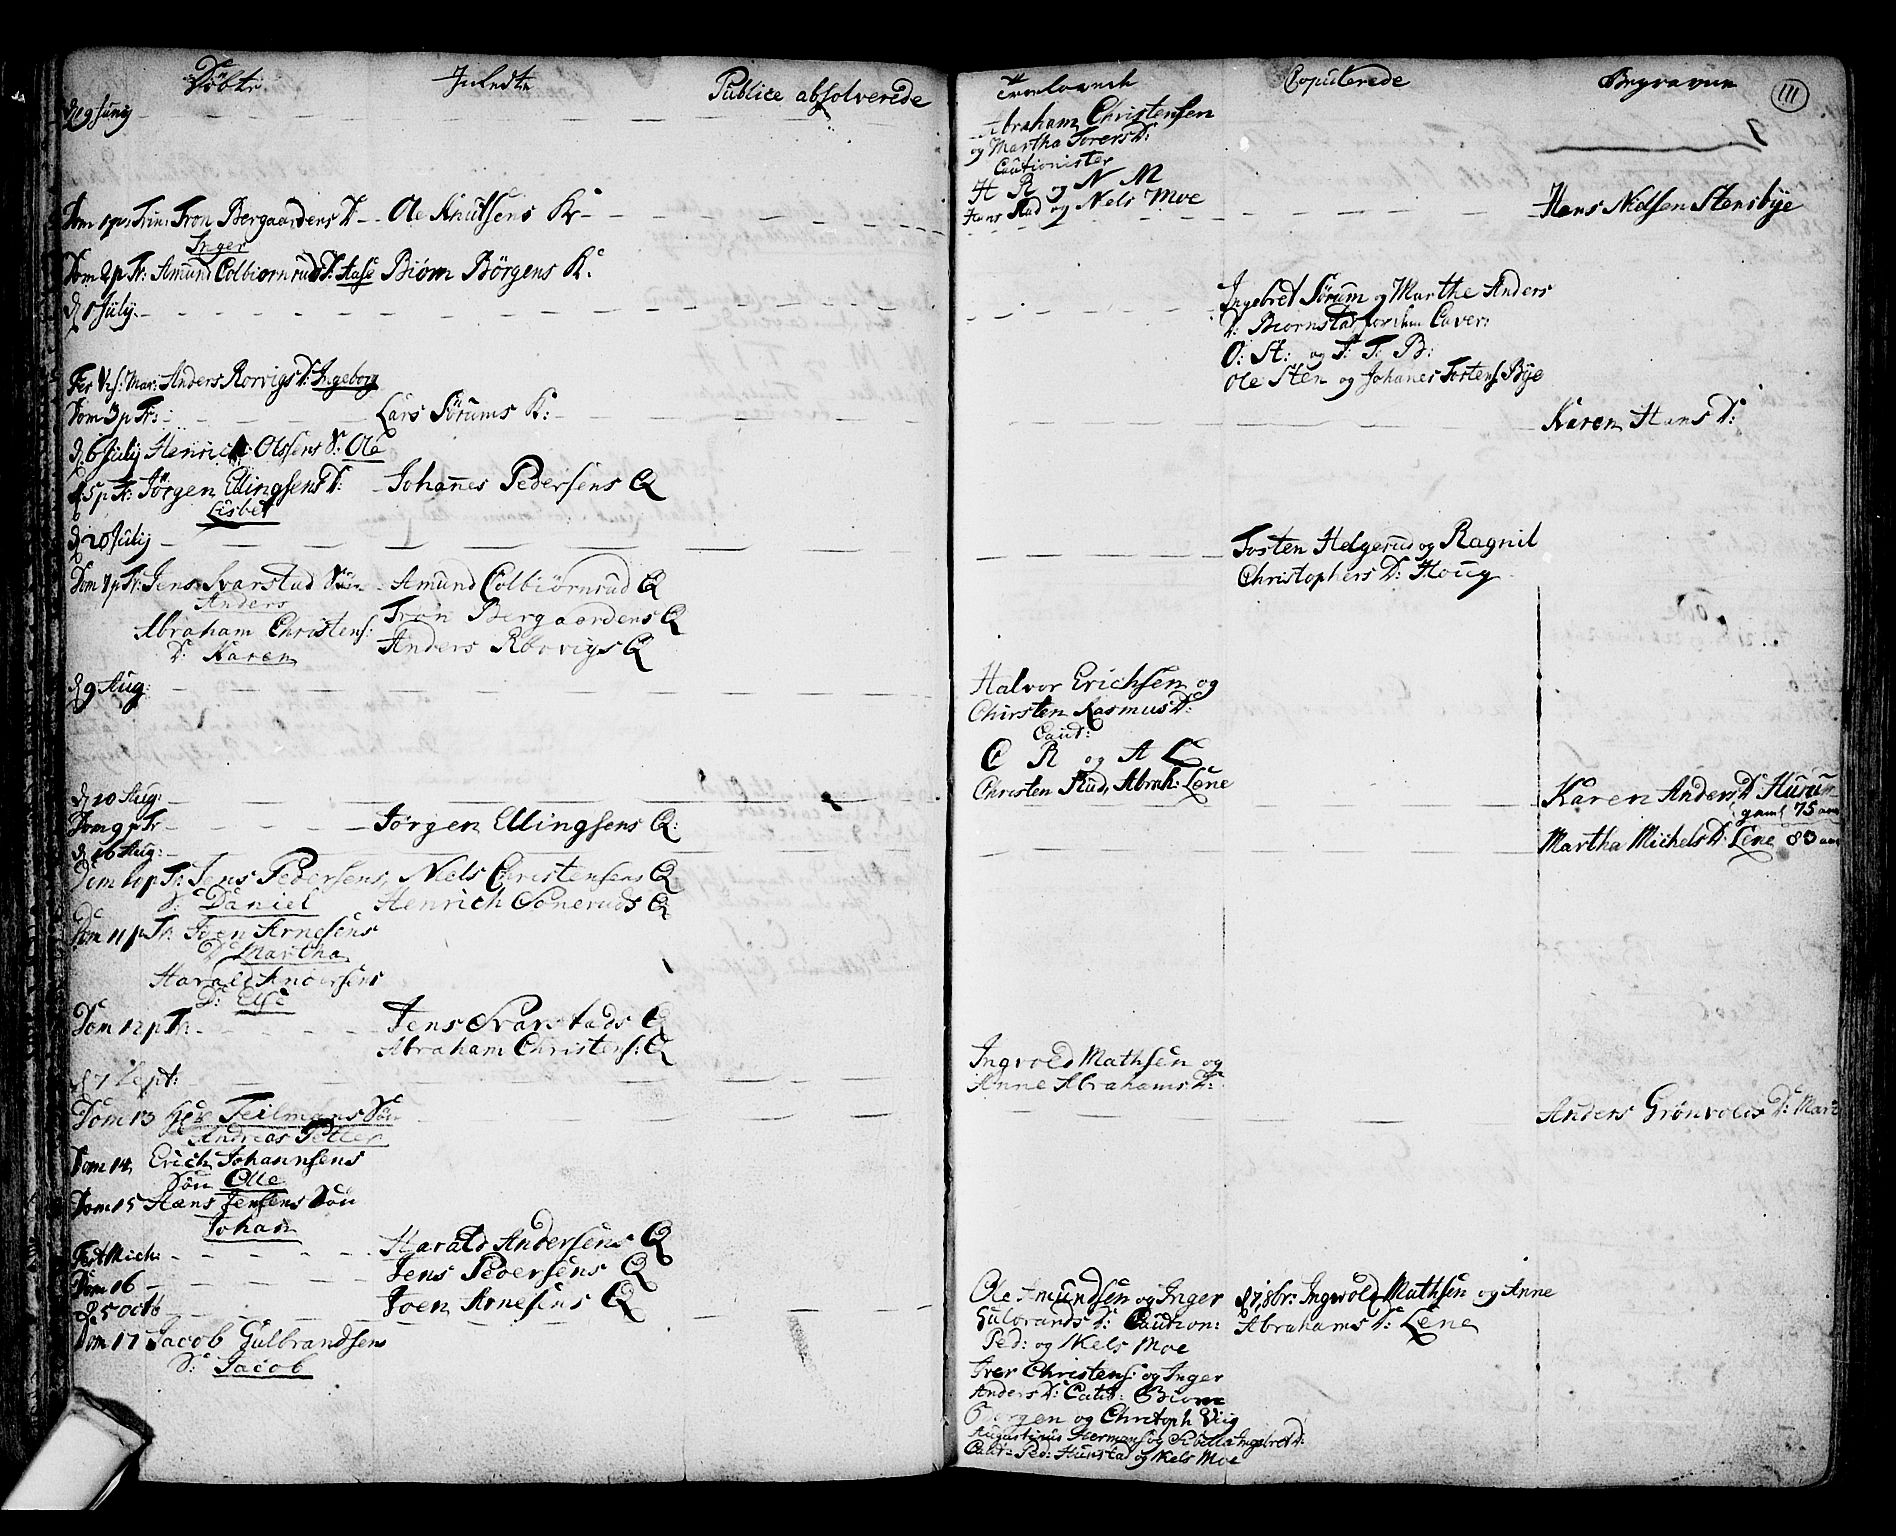 Döbte
Inledte
Publice absolverede
d 19 Juny
Dom 1 p Trin: Tron Bergaardens D. Ole Knutsens K:
Inger
Dom 2 p Tr: Amund Colbiornrud D: Aase Biørn Börgens K:
d 1 July
Fes Vis: Mar: Anders Rorvigs D: Ingeborg
Dom 3 p Tr: Lars Sörums K:
d 6 July Henrich Olssens S: Ole
5 p Tr: Jörgen Ellingsens D: Johanes Pedersens Q
Lisbet
d 20 July
Dom 8 p Tr: Jens Svarstad Sön Amund Colbiörnrud Q
Anders
Tron Bergaardens Q
Abraham Christens:
D: Karen
Anders Rörvigs Q
d 9 Aug:
d 10 Aug:
Dom 9 p Tr Jörgen Ellingsens Q:
d 16 Aug:
Dom 10 p Tr: Jens Pedersens, Niels Christensens Q
S: Daniel Henrich Soneruds Q
Dom 11 p Tr: Joen Arnesens
D: Martha
Harald Andersens
D: Else
Dom 12 p Tr Jens Svarstads Q
Abraham Christens: Q
d 7 Sept:
Dom 13 Her Teilmans Sön
Andreas Peller
Dom 14 Erich Johannsens
Sön Olle
Dom 15 Hans Jensens Sön
Johan
Fest Mich: Harald Andersens Q
Dom 16 Jens Pedersens Q
d 5 Octb Joen Arnesens Q
Dom 17 Jacob Gulbrandsen
S: Jacob
Troelovede
Copulerede
Begravne
111
Abraham Christensen
og Martha Torers D:
Cautionister
H R og N M
Hans Rud og Nels Moe
Hans Nielsen Stensbye
Ingebret Sørum og Marthe Anders
D: Biornstad for dem Caver:
O: St: og J: T: B:
Ole Sten og Johanes Tostens Bye
Karen Hans D:
Tosten Helgerud og Ragnil
Christophers D: Houg
Halvor Erichsen og
Chirsten Rasmus D:
Caut:
C R og A L
Christen Rud, Abrah: Lene
Karen Anders D: Hurum
gaml 75 aar
Martha Michels D: Lene 83 aar
Ingvold Mathsen og
Anne Abrahams D:
Anders Grönvolds D: Mari
Ole Amundsen og Inger
Gulbrands D: Caution:
Ped: og Nels Moe
Iver Christens: og Inger
Anders D: Caut: Biorn
Börgen og Christoph Viig
Augustinus Hermans og Inge­bret D:
Caut: Ped: Hunstad og Nels Moe
d 7 8br: Ingvold Mathsen og Anne
Abrahams D: Lene